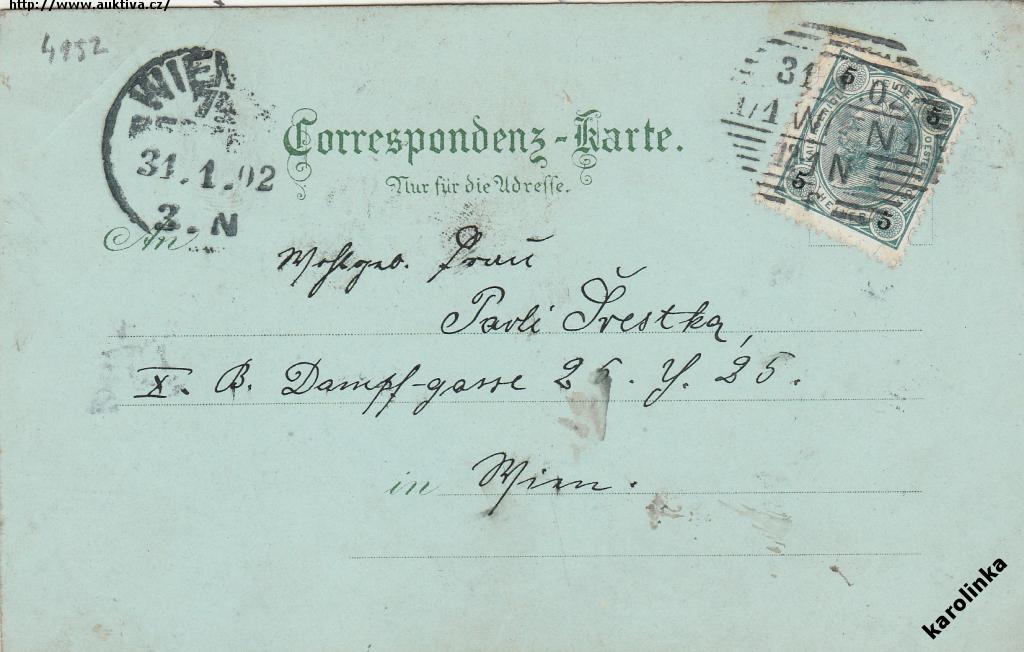 http://www.auktiva.cz/
4952
WIEN
31.1.02
3.N
31
5
5
5
5
Correspondenz-Karte.
Nur für die Adresse.
An
Wohlgeb. Frau
Pavli Švestka,
X. B. Dampf-gasse 25. 25.
in Wien.
karolinka